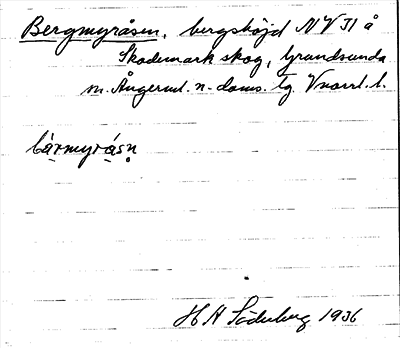 Bergmyråsen, bergshöjd NV 31 å
Skademark skog, Grundsunda
sn. Ångerml. n. doms. lg. Vnorrl. l.
bärmyråsn
H A Söderberg 1936